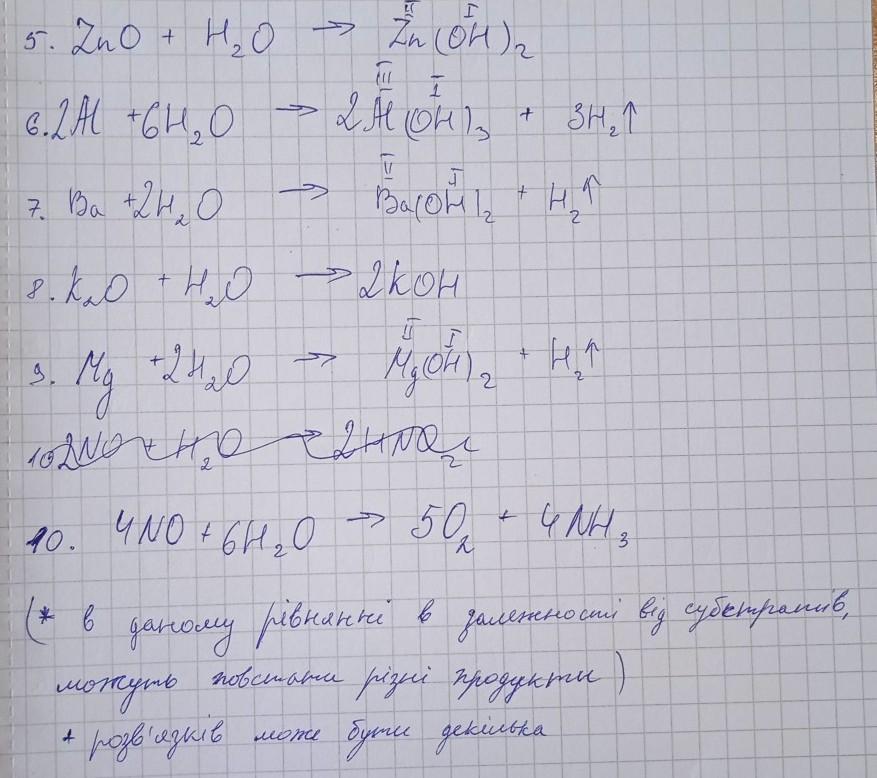 5. ZnO + H₂O → Zn(OH)₂ (II I)
6. 2Al + 6H₂O → 2Al(OH)₃ + 3H₂↑ (III I)
7. Ba + 2H₂O → Ba(OH)₂ + H₂↑ (II I)
8. K₂O + H₂O → 2KOH
9. Mg + 2H₂O → Mg(OH)₂ + H₂↑ (II I)
10 2NO + H₂O → 2HNO₂
10. 4NO + 6H₂O → 5O₂ + 4NH₃
(* в даному рівнянні в залежності від субстратів,
можуть повстати різні продукти)
+ розв'язків може бути декілька